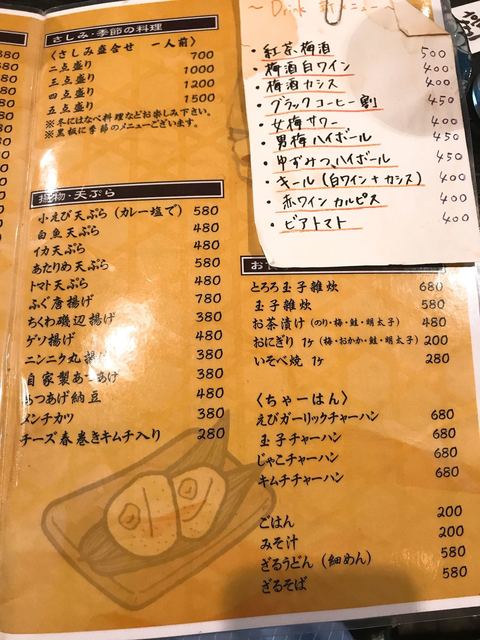 さしみ・季節の料理
〈さしみ盛合せ 一人前〉
二点盛り 700
三点盛り 1000
四点盛り 1200
五点盛り 1500
※冬にはなべ料理などお楽しみ下さい。
※黒板に季節のメニューございます。
揚物・天ぷら
小えび天ぷら（カレー塩で） 580
白魚天ぷら 480
イカ天ぷら 480
あたりめ天ぷら 580
トマト天ぷら 480
ふぐ唐揚げ 780
ちくわ磯辺揚げ 380
ゲソ揚げ 480
ニンニク丸揚げ 380
自家製あつあげ 380
あつあげ納豆 480
メンチカツ 380
チーズ春巻きキムチ入り 280
～Drink 新メニュー～
・紅茶梅酒 500
・梅酒白ワイン 400
・梅酒カシス 400
・ブラックコーヒー割 450
・女梅サワー 400
・男梅ハイボール 450
・ゆずみつハイボール 450
・キール（白ワイン＋カシス） 400
・赤ワインカルピス 400
・ビアトマト 400
とろろ玉子雑炊 680
玉子雑炊 580
お茶漬け（のり・梅・鮭・明太子） 480
おにぎり 1ヶ（梅・おかか・鮭・明太子） 200
いそべ焼 1ヶ 280
〈ちゃーはん〉
えびガーリックチャーハン 680
玉子チャーハン 680
じゃこチャーハン 680
キムチチャーハン 680
ごはん 200
みそ汁 200
ざるうどん（細めん） 580
ざるそば 580